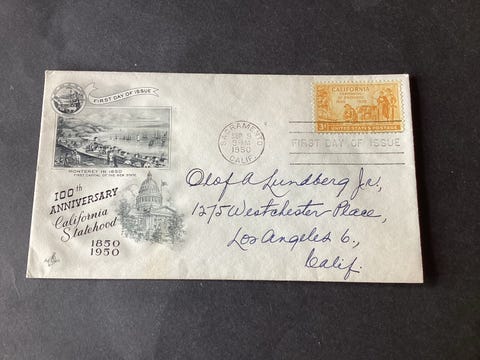 FIRST DAY OF ISSUE
MONTEREY IN 1850
FIRST CAPITAL OF THE NEW STATE
100th
ANNIVERSARY
California
Statehood
1850
1950
SACRAMENTO
SEP 9
9 AM
1950
CALIF.
CALIFORNIA
CENTENNIAL
OF STATEHOOD
1850 1950
3¢ UNITED STATES POSTAGE
FIRST DAY OF ISSUE
Olof A Lundberg Jr,
1275 Westchester Place,
Los Angeles 6,
Calif.